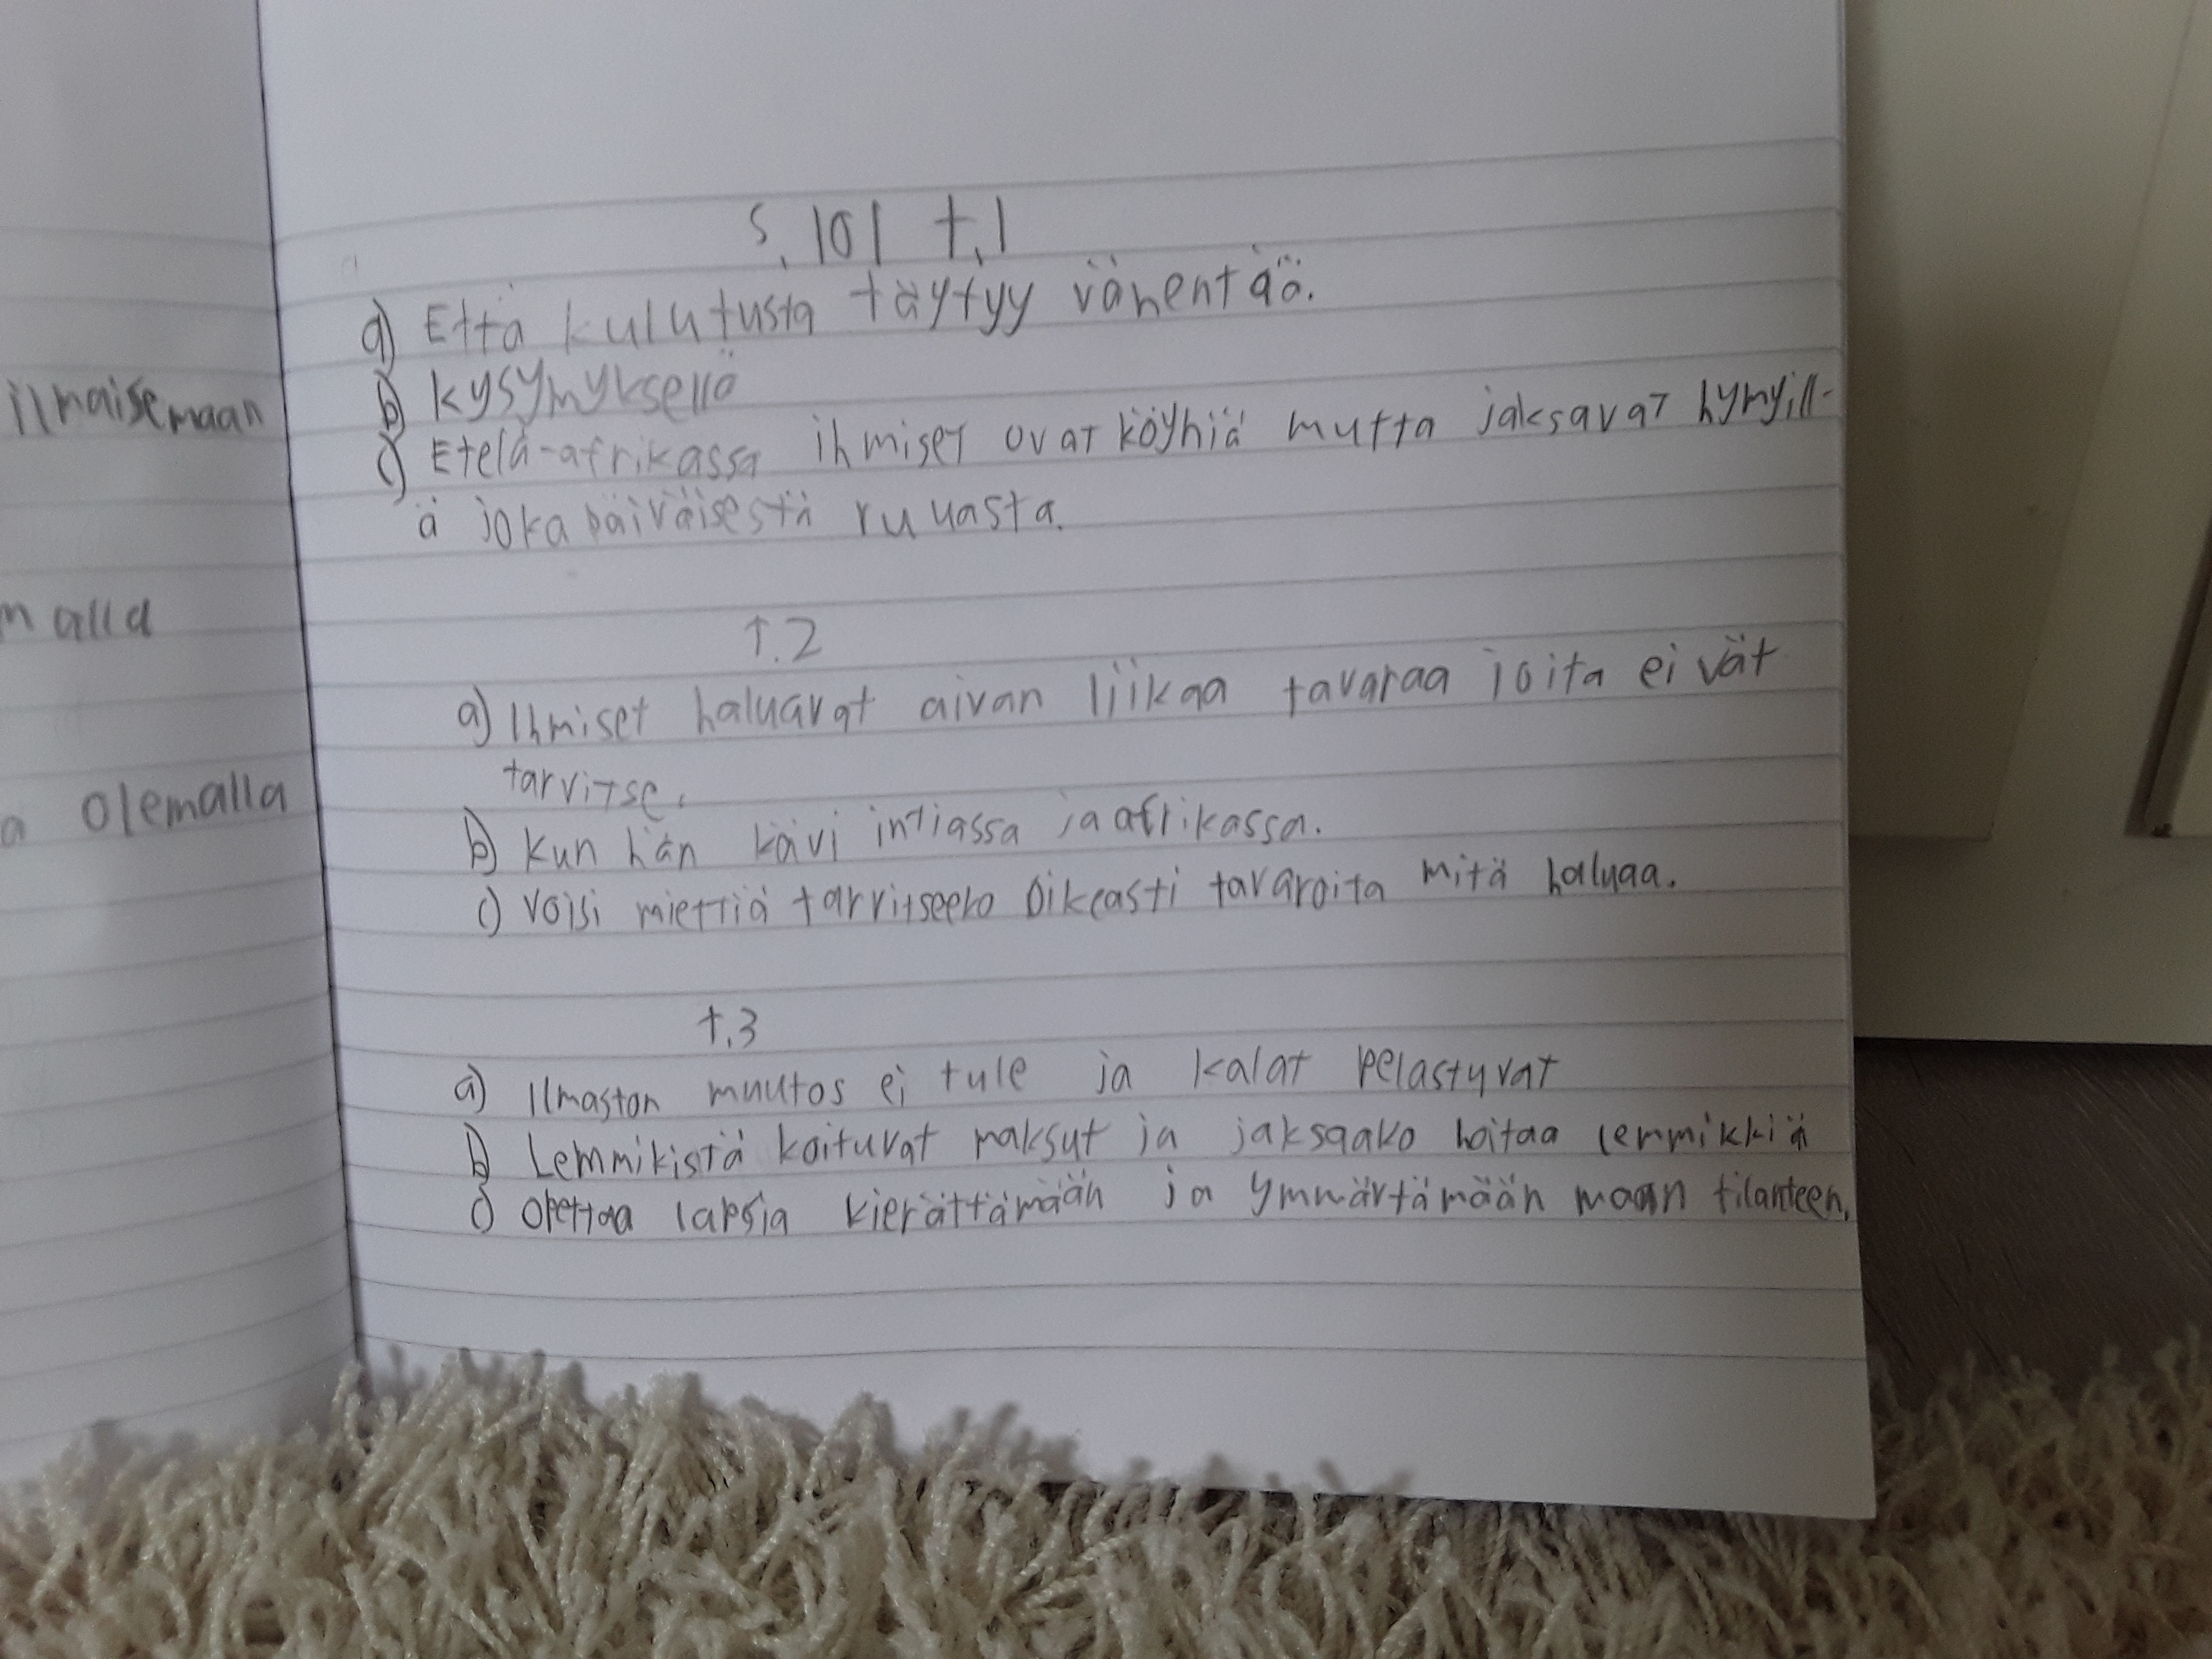 ilmaisemaan
malla
a olemalla
s. 101 t.1
a) Että kulutusta täytyy vähentää.
b) kysymyksellä
c) Etelä-afrikassa ihmiset ovat köyhiä mutta jaksavat hymyill-
ä jokapäiväisestä ruuasta.
t.2
a) Ihmiset haluavat aivan liikaa tavaraa joita eivät
tarvitse.
b) Kun hän kävi intiassa ja afrikassa.
c) voisi miettiä tarvitseeko oikeasti tavaroita mitä haluaa.
t.3
a) Ilmaston muutos ei tule ja kalat pelastyvat
b) Lemmikistä koituvat maksut ja jaksaako hoitaa lemmikkiä
c) opettaa lapsia kierättämään ja ymmärtämään maan tilanteen.